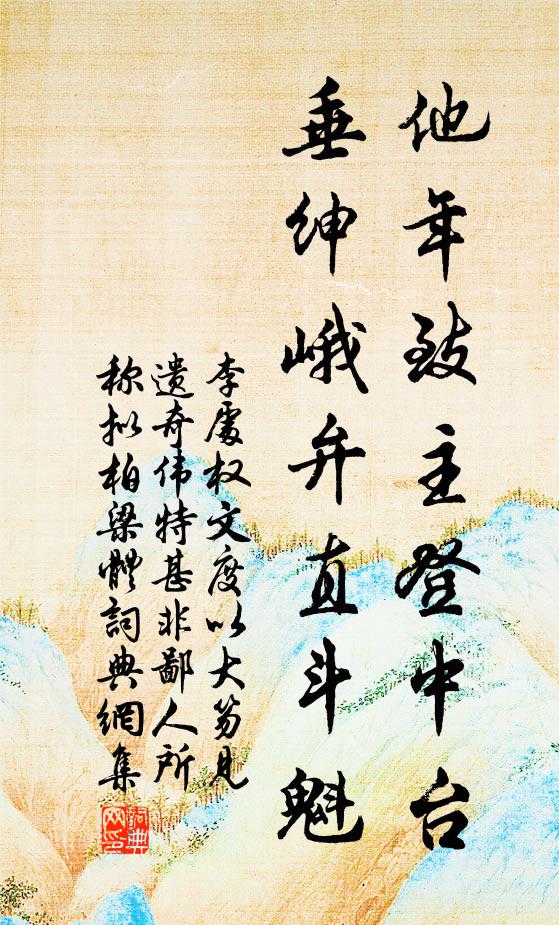 他年致主登中台
垂绅峨弁直斗魁
李處权文度以大笏见
遗奇伟特甚非鄙人所
称拟柏梁體詞典網集
詞典網印